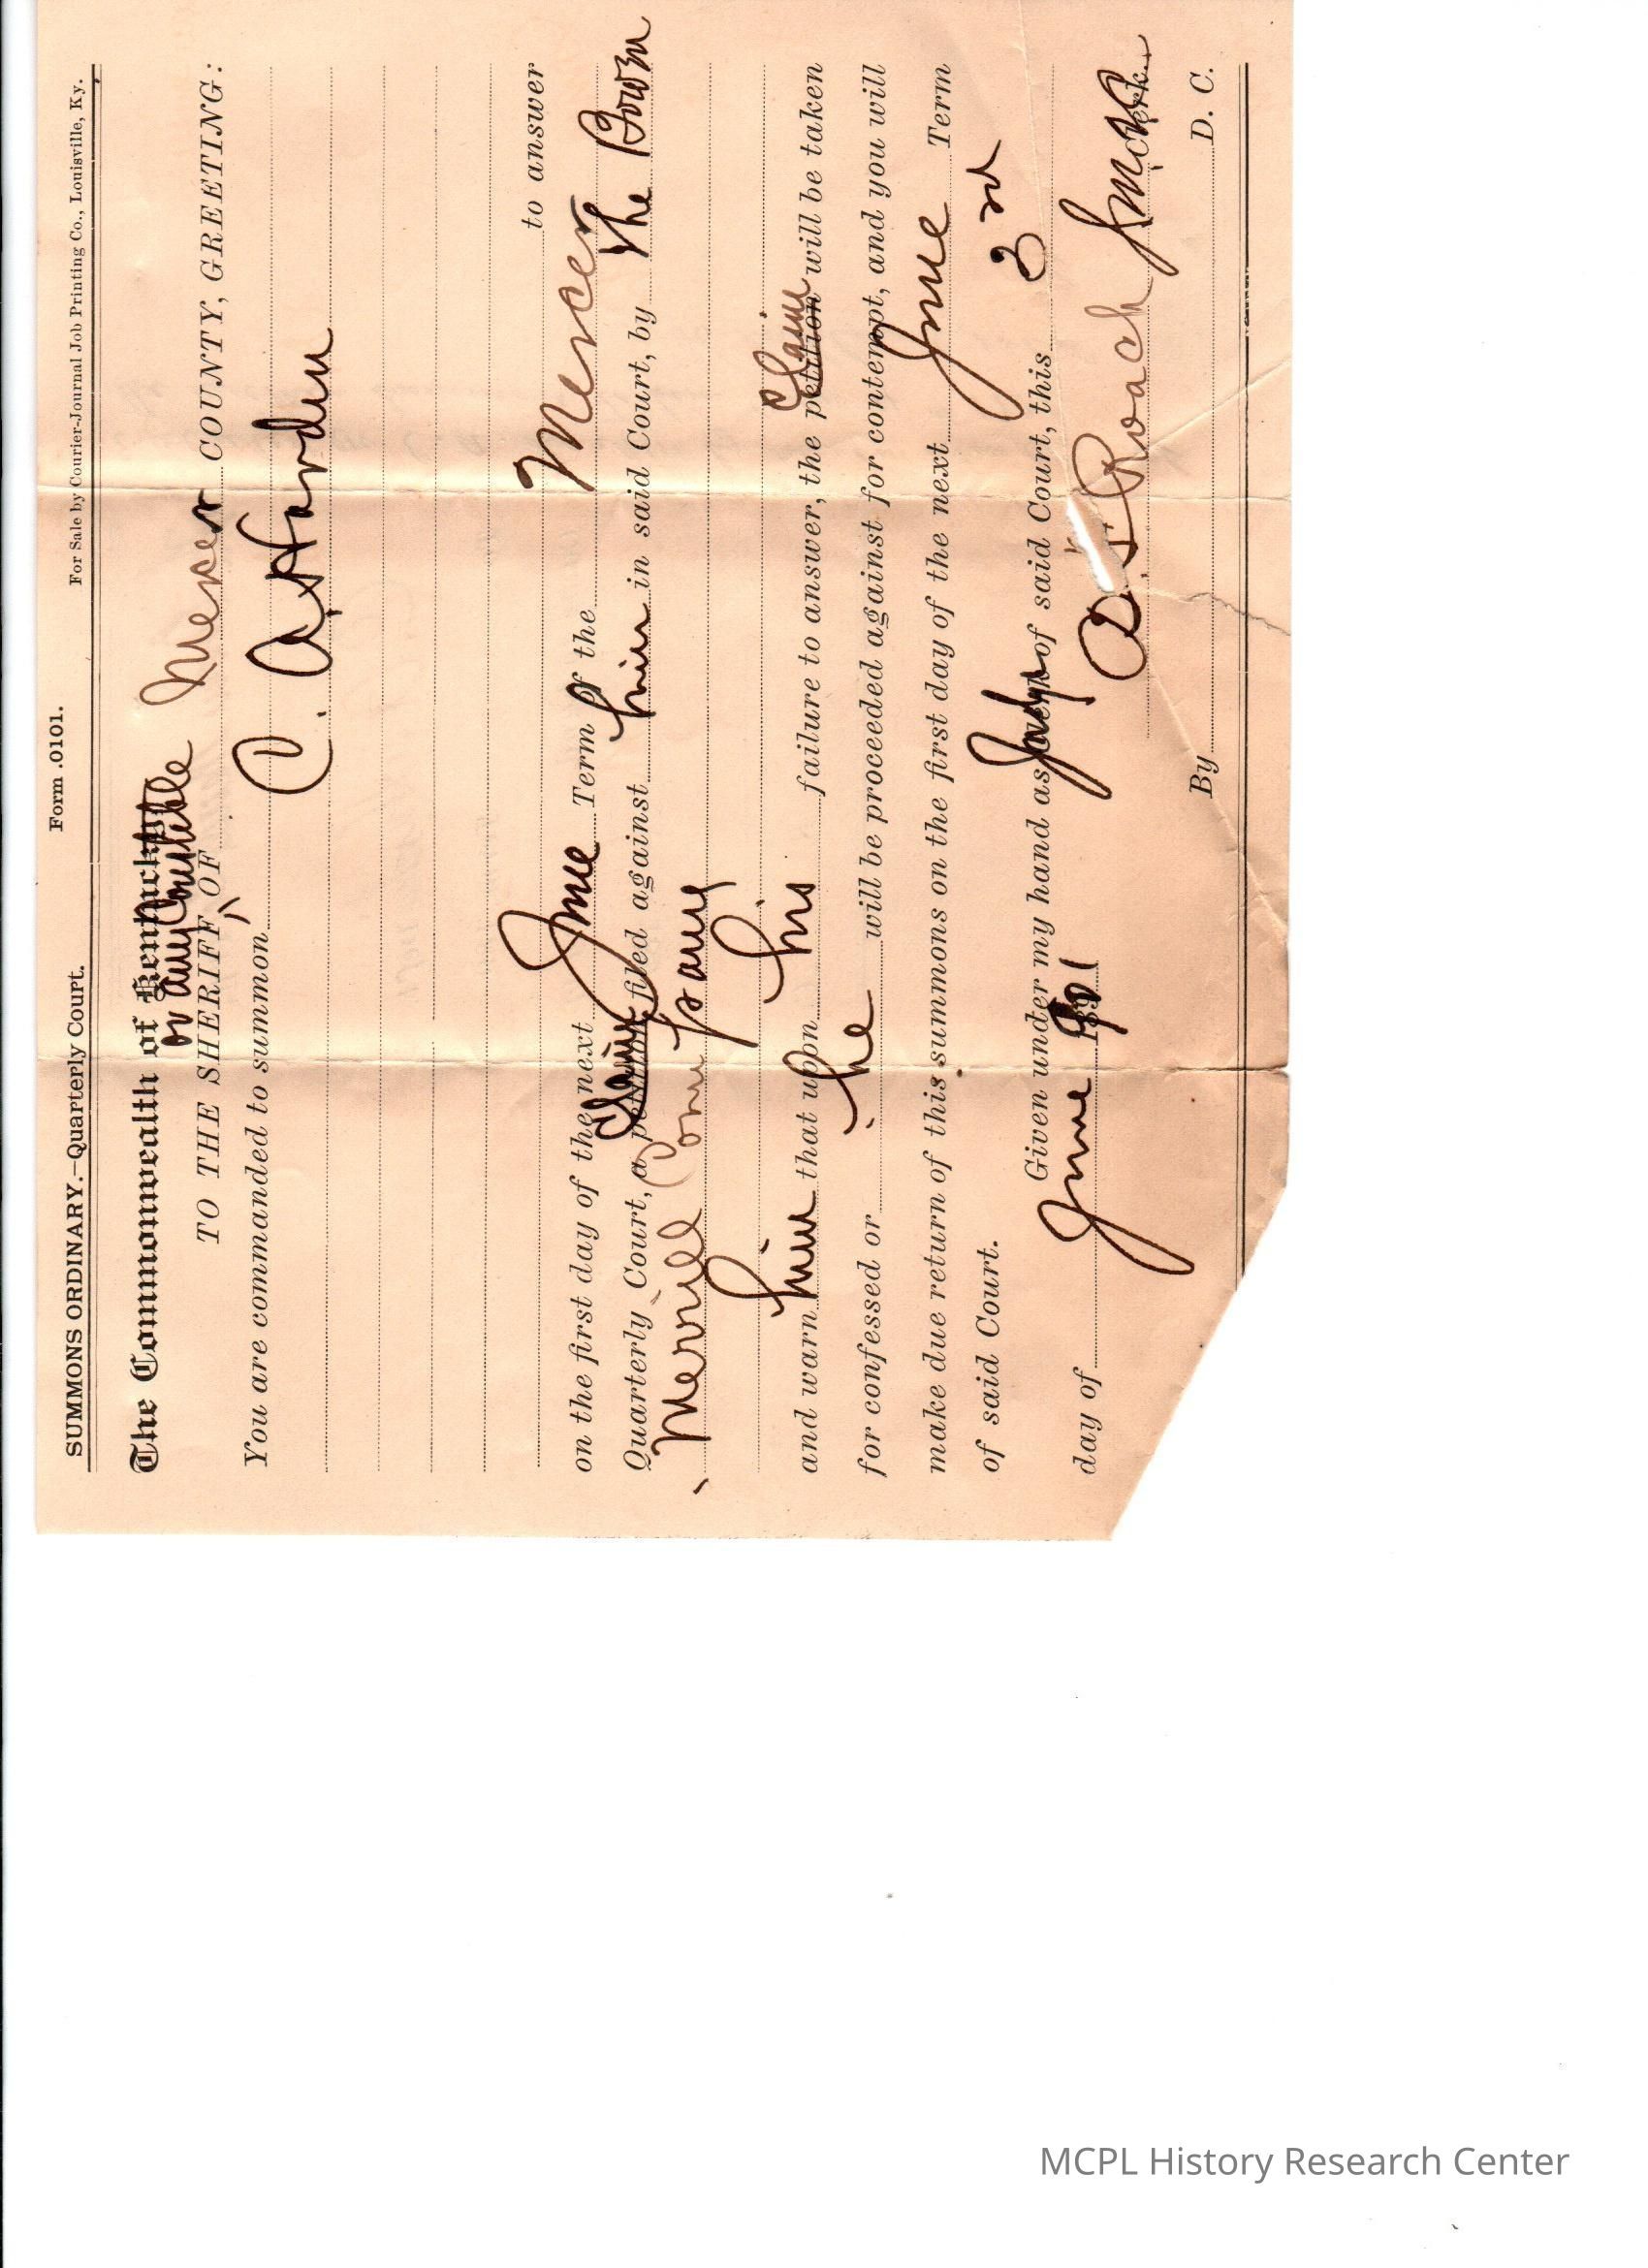 SUMMONS ORDINARY.—Quarterly Court. Form .0101. For Sale by Courier-Journal Job Printing Co., Louisville, Ky.
The Commonwealth of Kentucky,
or any Constable
TO THE SHERIFF OF Mercer COUNTY, GREETING:
You are commanded to summon
C. A. Hardin
to answer
on the first day of the next June Term of the Mercer
Quarterly Court, a petition Claim filed against him in said Court, by The Bowen
Merrill Company
and warn him that upon his failure to answer, the petition Claim will be taken
for confessed or he will be proceeded against for contempt, and you will
make due return of this summons on the first day of the next June Term
of said Court.
Given under my hand as Judge of said Court, this 3rd
day of June 1901
Roach
Clerk.
By D. C.
MCPL History Research Center